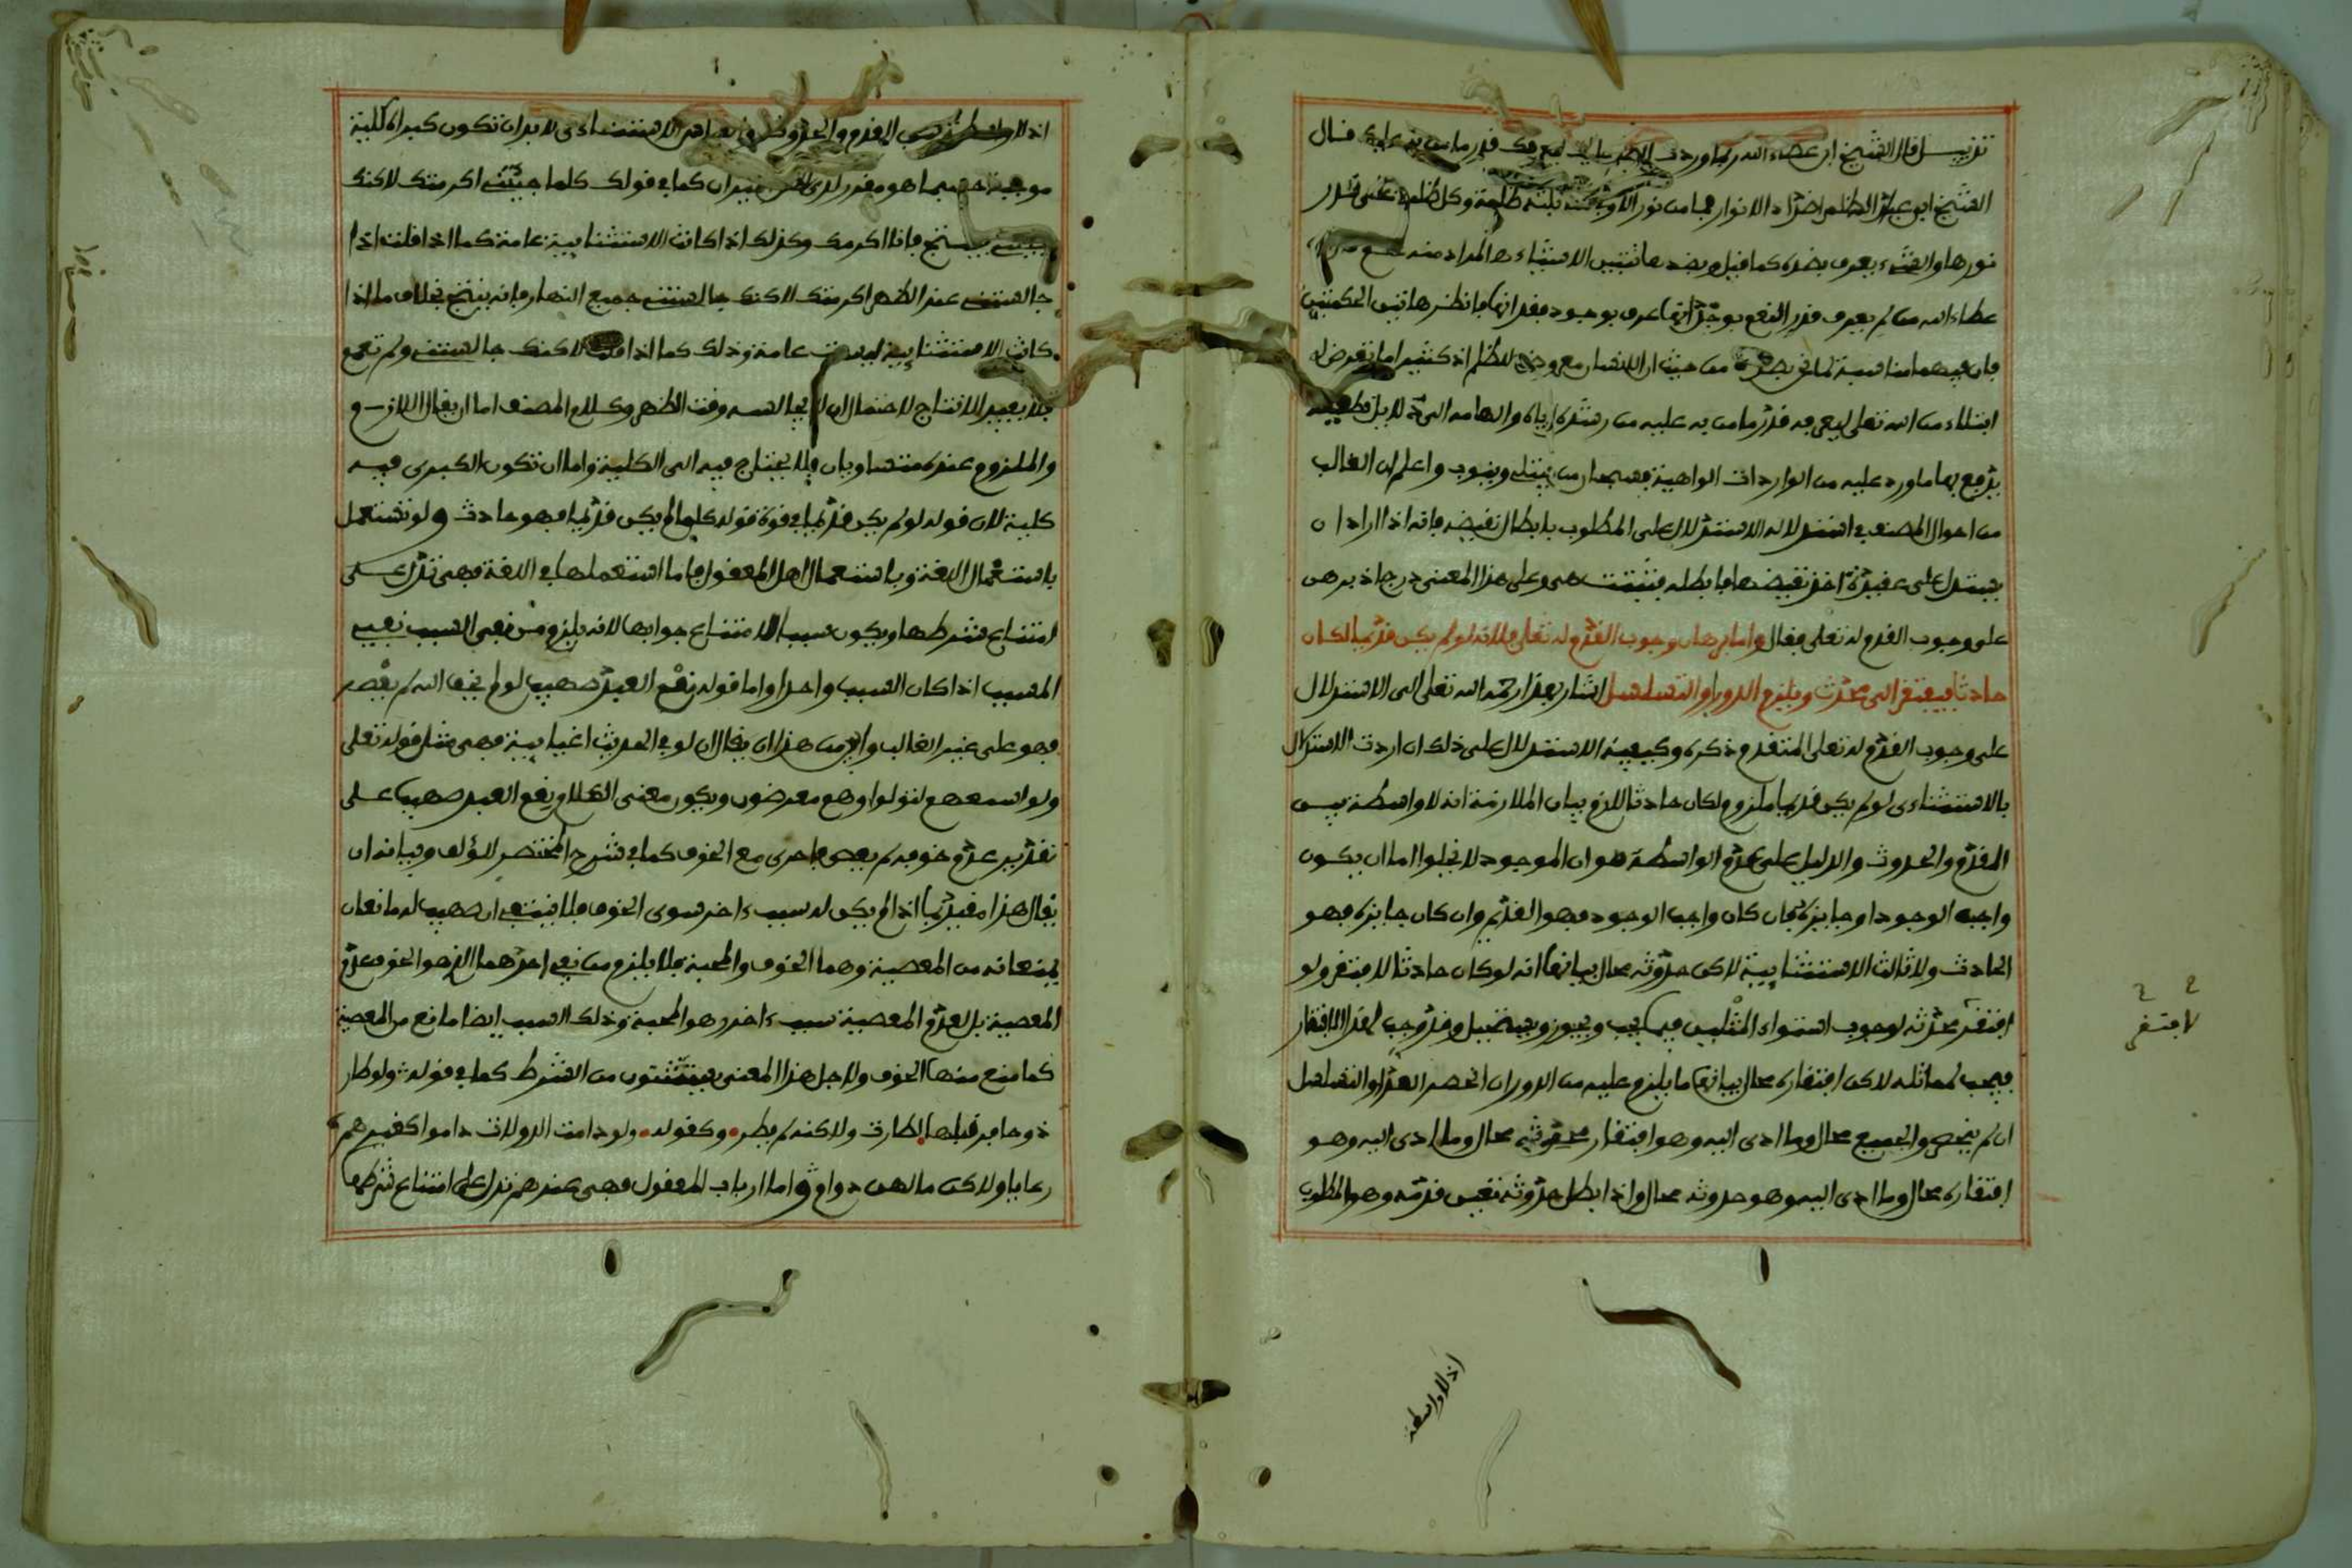 تذييل قال الشيخ ابن عطاء الله ربما وردت الظلم عليك ليعرفك قدر ما من به عليك قال
الشيخ ابو عبد الله الظلم اضداد الانوار فما من نور الا وفي مقابلته ظلمة وكل ظلمة على قدر
نورها والشيء يعرف بضده كما قيل وبضدها تتبين الاشياء
عطاء الله من لم يعرف قدر النعم بوجدانها عرف بوجود فقدانها فانظر هاتين الحكمتين
فان فيهما مناسبة لما نحن بصدده من حيث ان الانسان معروض للظلم اذ كثيرا ما تعرض له
ابتلاء من الله تعالى ليعرفه قدر ما من به عليه من رشده اياه والهامه الى دلايل قطعية
يدفع بها ما ورد عليه من الواردات الواهية فسبحان من يبتلي ويثوب واعلم ان الغالب
من احوال المصنف في استدلاله الاستدلال على المطلوب بابطال نقيضه فانه اذا اراد ان
يستدل على عقيدة اخذ نقيضها فابطله فتثبت هي وعلى هذا المعنى درج اذ برهن
على وجوب القدم له تعالى فقال واما برهان وجوب القدم له تعالى فلانه لو لم يكن قديما لكان
حادثا فيفتقر الى محدث ويلزم الدور او التسلسل اشار بهذا رحمه الله تعالى الى الاستدلال
على وجوب القدم له تعالى المتقدم ذكره وكيفية الاستدلال على ذلك ان اردت الاستدلال
بالاستثناءى لو لم يكن قديما ملزوم لكان حادثا لازم بيان الملازمة انه لا واسطة بين
القدم والحدوث والدليل على عدم الواسطة هو ان الموجود لا يخلوا اما ان يكون
واجب الوجود او جايزه فان كان واجب الوجود فهو القديم وان كان جايزه فهو
الحادث ولا ثالث الاستثنايية لاكن حدوثه محال بيانها انه لو كان حادثا لافتقر ولو
افتقر محدثه لوجوب استواء المثلين فيما يجب ويجوز ويستحيل وقد وجب لهذا الافتقار
فيجب لمماثله لاكن افتقاره محال بيانها ما يلزم عليه من الدور ان انحصر العدد او التسلسل
ان لم ينحصر والجميع محال وما ادى اليه وهو افتقار محدثه محال وما ادى اليه وهو
افتقاره محال وما ادى اليه وهو حدوثه محال واذا بطل حدوثه تعين قدمه وهو المطلوب
لافتقر
اذ لا واسطة
اذ لا واسطة بين القدم والحدوث الاستثناءى لا بد ان تكون كبراه كلية
موجبة حسبما هو مقرر لدى كما في قولك كلما جيتني اكرمتك لاكنك
جيتني ينتج فانا اكرمك وكذلك اذا كانت الاستثنايية عامة كما اذا قلت اذا
جالستني عند الظهر اكرمتك لاكنك جالستني جميع النهار فانه ينتج بخلاف ما اذا
كانت الاستثنايية ليست عامة وذلك كما اذا قلت لاكنك جالستني ولم تعمم
فلا يفيد الانتاج لاحتمال ان لا يجالسه وقت الظهر وكلام المصنف اما ان يقال اللازم
والملزوم عنده متساويان فلا يحتاج فيه الى الكلية واما ان تكون الكبرى فيه
كلية لان قوله لو لم يكن قديما في قوة قوله كلما لم يكن قديما فهو حادث ولو تستعمل
باستعمال اللغة وباستعمال اهل المعقول فاما استعمالها في اللغة فهي تدل على
امتناع شرطها ويكون سببا لامتناع جوابها لانه يلزم من نفي السبب نفي
المسبب اذا كان السبب واحدا واما قوله نعم العبد صهيب لو لم يخف الله لم يعصه
فهو على غير الغالب من هذا ان يقال ان لو في الحديث اغيايية فهي مثل قوله تعالى
ولو اسمعهم لتولوا وهم معرضون ويكون معنى الكلام نعم العبد صهيب على
تقدير عدم خوفه لم يعص فاحرى مع الخوف كما في شرح المختصر للمؤلف وبيانه ان
يقال هذا مقيد بما اذا لم يكن له سبب اخر سوى الخوف فلا ينتفي ان صهيب له مانعان
يمنعانه من المعصية وهما الخوف والمحبة فلا يلزم من نفي احدهما الذي هو الخوف عدم
المعصية بل لعدم المعصية سبب اخر وهو المحبة وذلك السبب ايضا مانع من المعصية
كما منع منها الخوف ولاجل هذا المعنى يستثنون من الشرط كما في قوله ولو طار
ذو حافر قبلها لطارت ولاكنه لم يطر وكقوله ولو دامت الدولات داموا كغيرهم
رعايا ولاكن ما لهن دوام واما ارباب المعقول فهي عندهم تدل على امتناع شرطها